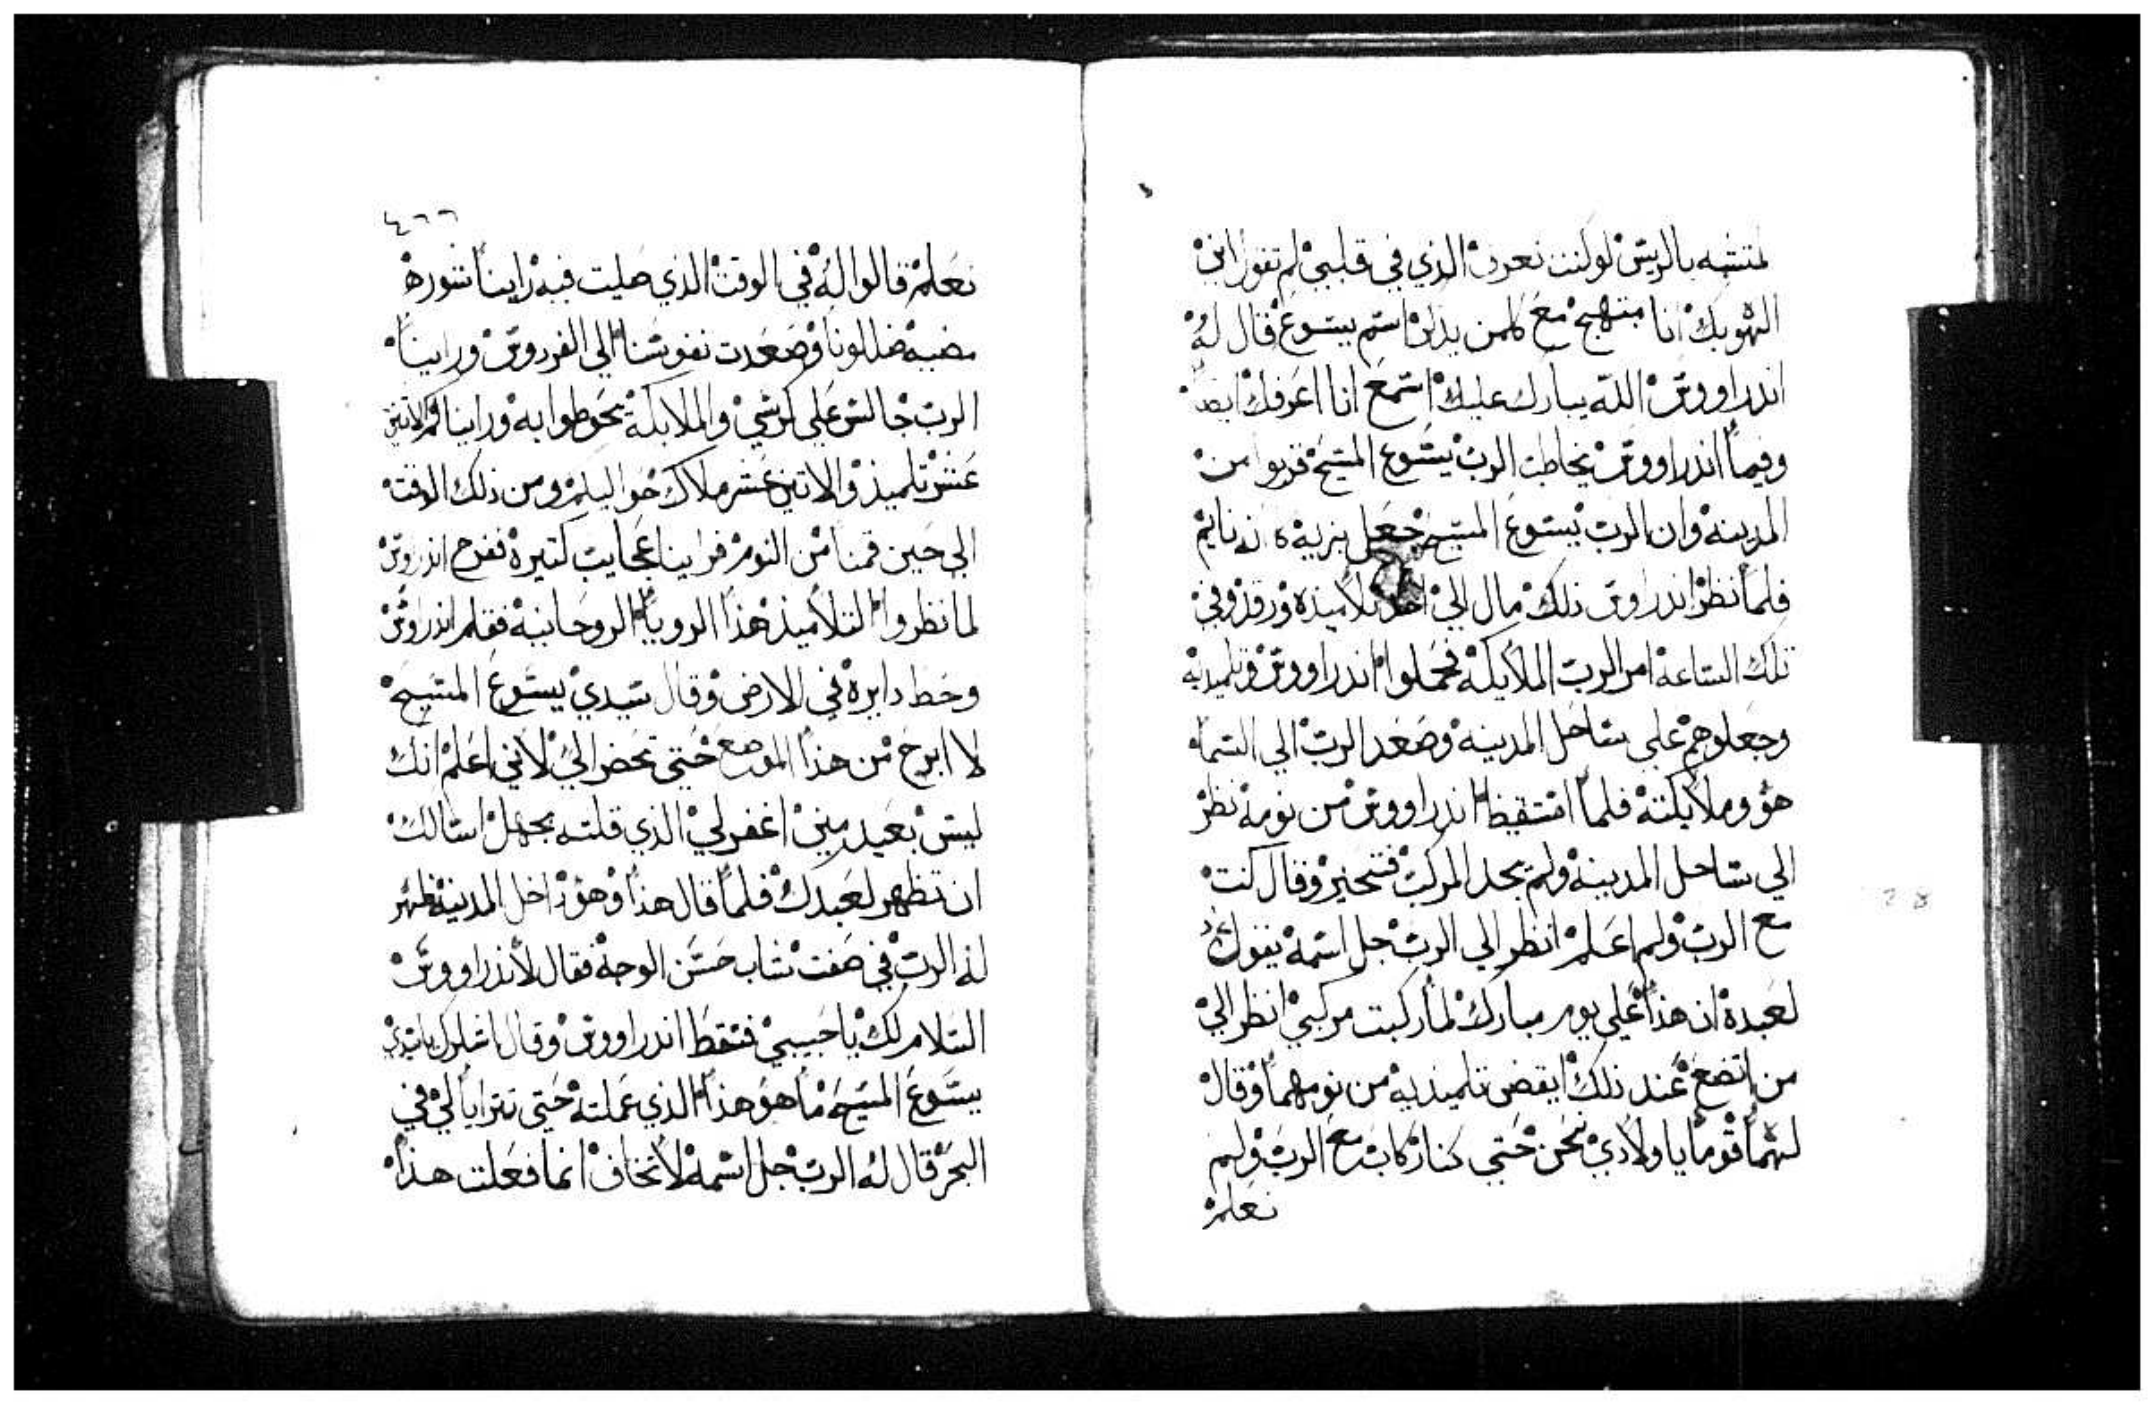 لمتشبه بالريس لو كنت تعرف الذي في قلبي لم تقول اني
الهوبك انا مبتهج مع كلمن يدكر اسم يسوع قال له
اندراووس الله يبارك عليك اسمع انا اعرفك ايضا
وفيما اندراووس يخاطب الرب يسوع المسيح قربوا من
المدينه وان الرب يسوع المسيح جعل بزيه انه نايم
فلما نظر اندراوس ذلك مال الي احد تلاميذه ورقد وفي
تلك الساعه امر الرب الملايكه فحملوا اندراووس وتلميديه
وجعلوهم علي ساحل المدينه وصعد الرب الي السما
هو وملايكته فلما استقيظ اندراووس من نومه نظر
الي ساحل المدينه ولم يجد المركب فتحير وقال كنت
مع الرب ولم اعلم انظر الي الرب جل اسمه يقول
لعبده ان هذا علي يوم مبارك لما ركبت مركبي انظر الي
من اتضع عند ذلك ايقض تلميذيه من نومهما وقال
لهما قوما يا ولادي نحن حتي كنا ركاب مع الرب ولم
نعلم
٤٦٦
نعلم قالوا له في الوقت الذي صليت فيه راينا نسوره
مضيه ضللونا وصعدت نفوسنا الي الفردوس وراينا
الرب جالس علي كرسي والملايكة يحوطوا به وراينا الاتني
عشر تلميذ والاتني عشر ملاك حواليلم ومن ذلك الوقت
الي حين قمنا من النوم فراينا عجايب كتيرة ففرح اندراوس
لما نظروا التلاميذ هذا الرويا الروحانيه فقام اندراوس
وخط دايرة في الارض وقال سيدي يسوع المسيح
لا ابرح من هذا الموضع حتي تحضر الي لاني اعلم انك
ليس بعيد مني اغفر لي الذي قلته بجهل اسالك
ان تظهر لعبدك فلما قال هذا وهو داخل المدينه ظهر
له الرب في صفت شاب حسن الوجه فقال لاندراووس
السلام لك يا حبيبي فسقط اندراووس وقال اشكرك يا سيدي
يسوع المسيح ما هو هذا الذي عملته حتي تترايا لي في
البحر قال له الرب جل اسمه لا تخاف انما فعلت هذا